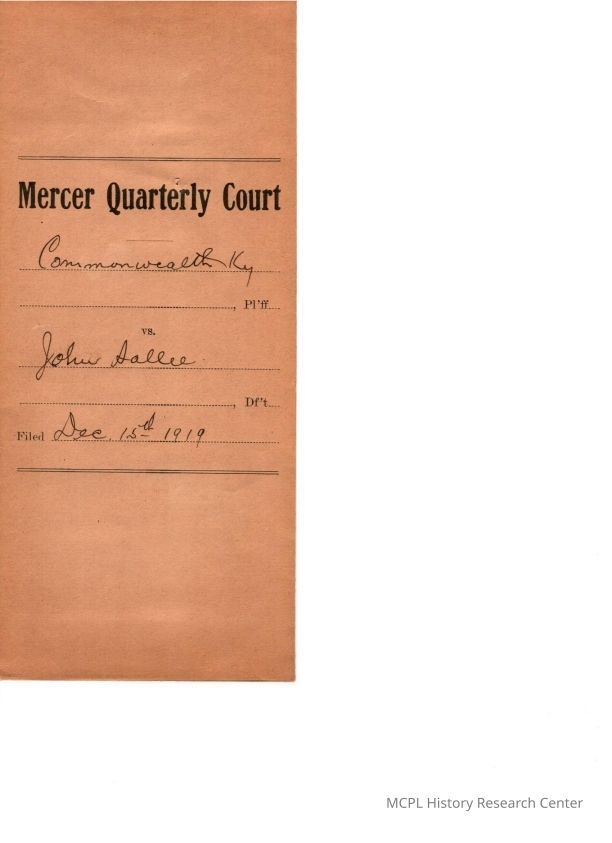 Mercer Quarterly Court
Commonwealth Ky
, Pl'ff.
vs.
John Sallee
, Df't.
Filed Dec. 15th 1919
MCPL History Research Center